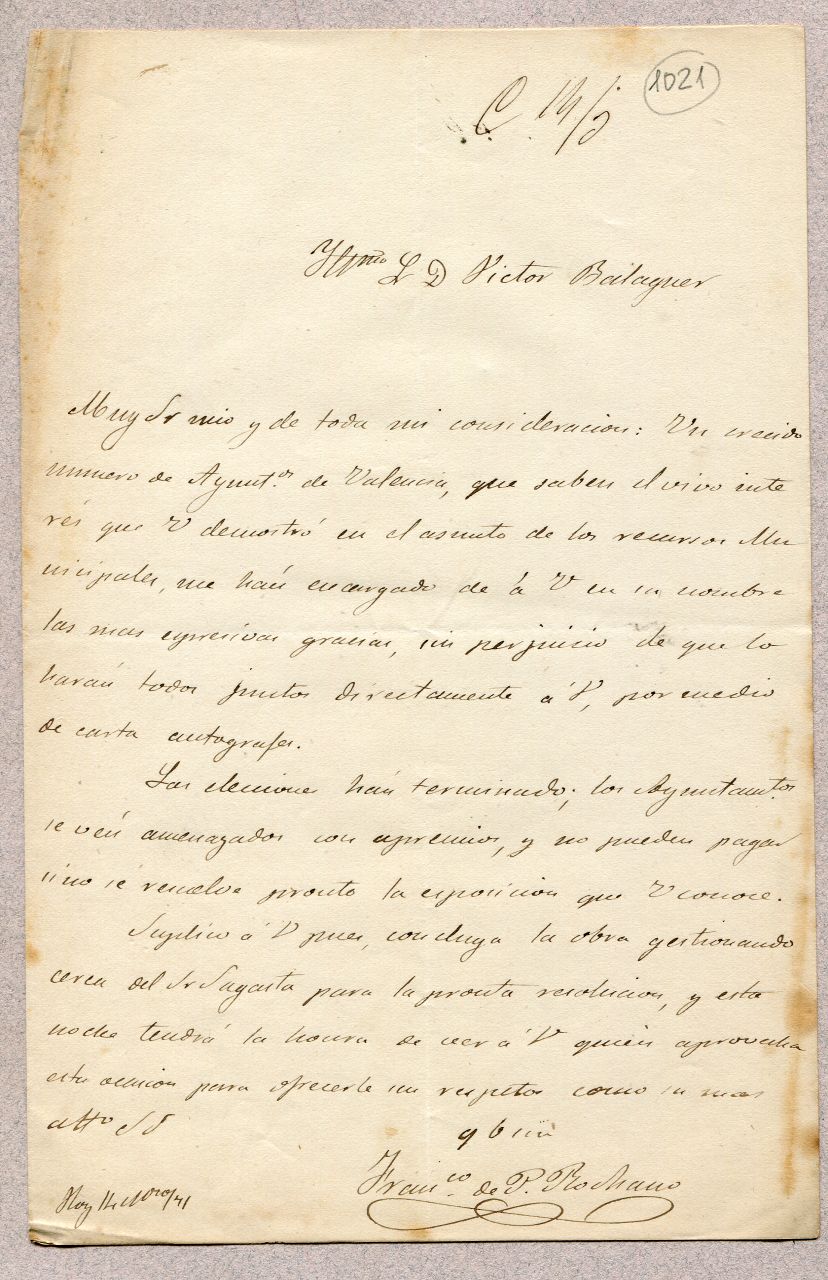 1021
C 14/5
Yllmo Sr D Victor Balaguer
Muy Sr mio y de toda mi consideracion: Un crecido
numero de Ayunt.os de Valencia, que saben el vivo inte
rés que V demostró en el asunto de los recursos Mu
nicipales, me hán encargado dé á V en su nombre
las mas espresivas gracias, sin perjuicio de que lo
harán todos juntos directamente á V, por medio
de carta autografa.
Las elecciones hán terminado; los Ayuntamtos
se vén amenazados con apremios, y no pueden pagar
si no sé resuelve pronto la esposicion que V conoce.
Suplico á V pues, concluya la obra gestionando
cerca del Sr Sagasta para la pronta resolucion, y esta
noche tendrá la honra de ver á V quién aprovecha
esta ocasion para ofrecerle sus respetos como su mas
atto SS
q b s m
Fran.co de P. Rochano
Hoy 14 /71